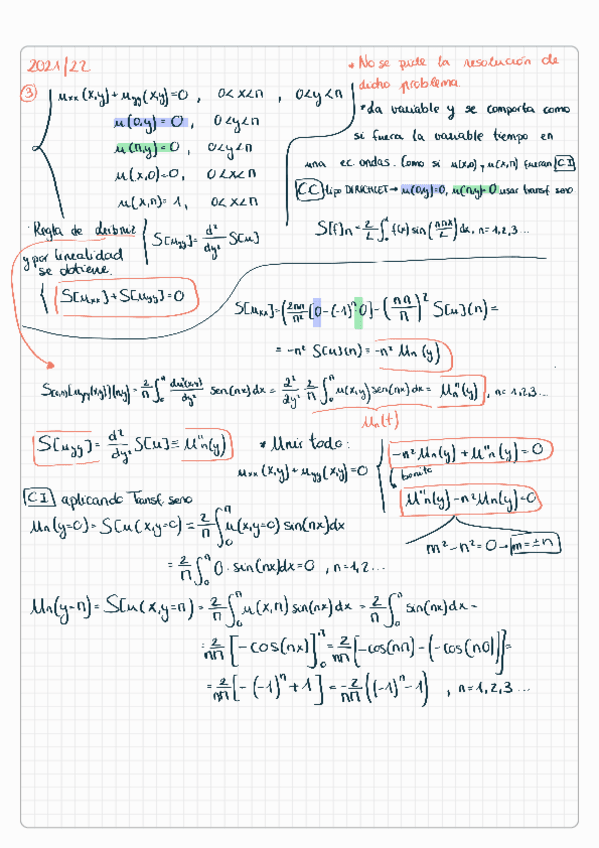 2021/22
* No se pide la resolución de
dicho problema.
③ uxx(x,y)+uyy(x,y)=0, 0<x<π, 0<y<π
* La variable y se comporta como
u(0,y)=0, 0<y<π
si fuera la variable tiempo en
u(π,y)=0, 0<y<π
una ec. ondas. Como si u(x,0) y u(x,π) fueran CI
u(x,0)=0, 0<x<π
CC tipo DIRICHLET → u(0,y)=0, u(π,y)=0 usar transf seno
u(x,π)=1, 0<x<π
S[f]n=2/L ∫₀ᴸ f(x) sin(nπx/L)dx, n=1,2,3...
Regla de
S[uyy]=d²/dy² S[u]
y por linealidad
se obtiene.
S[uxx]+S[uyy]=0
S[uxx]=(2nπ/π²[0-(-1)ⁿ·0]-(nπ/π)² S[u](n)=
=-n² S[u](n)=-n² Un(y)
=2/π ∫₀^π sen(nx)dx=∂²/∂y² 2/π ∫₀^π u(x,y)sen(nx)dx=U''n(y), n=1,2,3...
Un(t)
S[uyy]=d²/dy² S[u]≡U''n(y)
* Unir todo:
uxx(x,y)+uyy(x,y)=0
-n²Un(y)+U''n(y)=0
bonito
U''n(y)-n²Un(y)=0
m²-n²=0→m=±n
CI aplicando Transf. seno
Un(y=0)=S[u(x,y=0)=2/π ∫₀^π u(x,y=0) sin(nx)dx
=2/π ∫₀^π 0·sin(nx)dx=0, n=1,2...
Un(y=π)=S[u(x,y=π)=2/π ∫₀^π u(x,π) sin(nx)dx=2/π ∫₀^π sin(nx)dx=
=2/nπ [-cos(nx)]₀^π=2/nπ[-cos(nπ)-(-cos(n0))]=
=2/nπ[-(-1)ⁿ+1]=-2/nπ((-1)ⁿ-1), n=1,2,3...